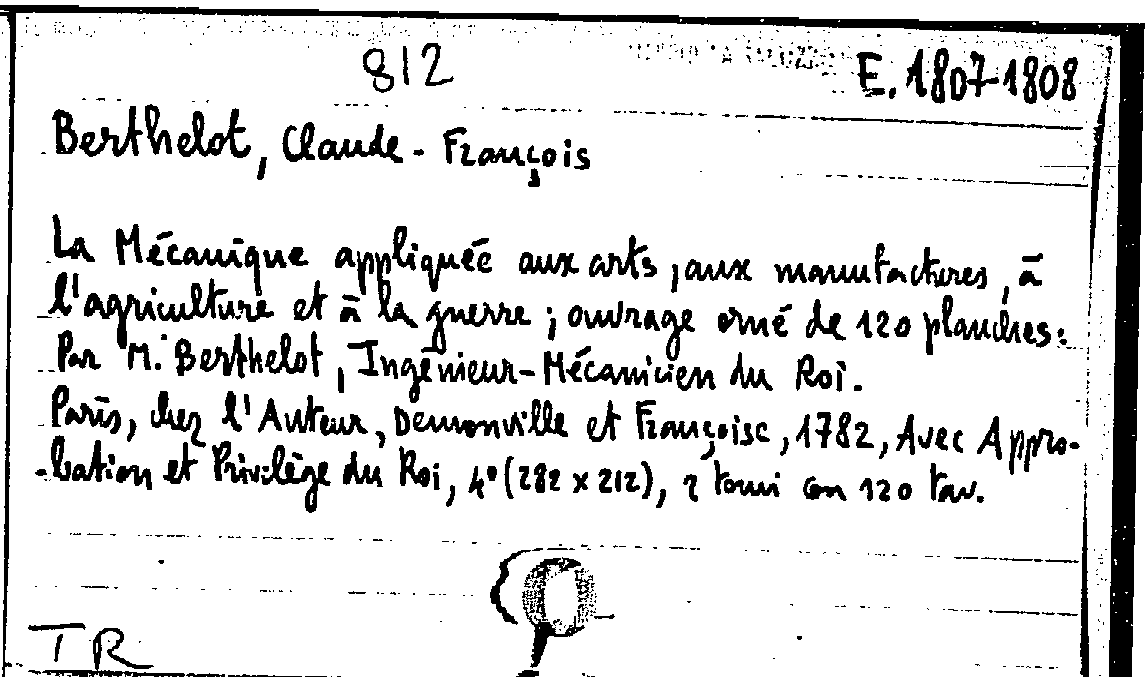 812
E. 1807-1808
Berthelot, Claude-François
La Mécanique appliquée aux arts, aux manufactures, à
l'agriculture et à la guerre; ouvrage orné de 120 planches:
Par M. Berthelot, Ingénieur-Mécanicien du Roi.
Paris, chez l'Auteur, Demonville et Françoise, 1782, Avec Appro-
-bation et Privilège du Roi, 4° (282 x 212), 2 tomi con 120 tav.
TR